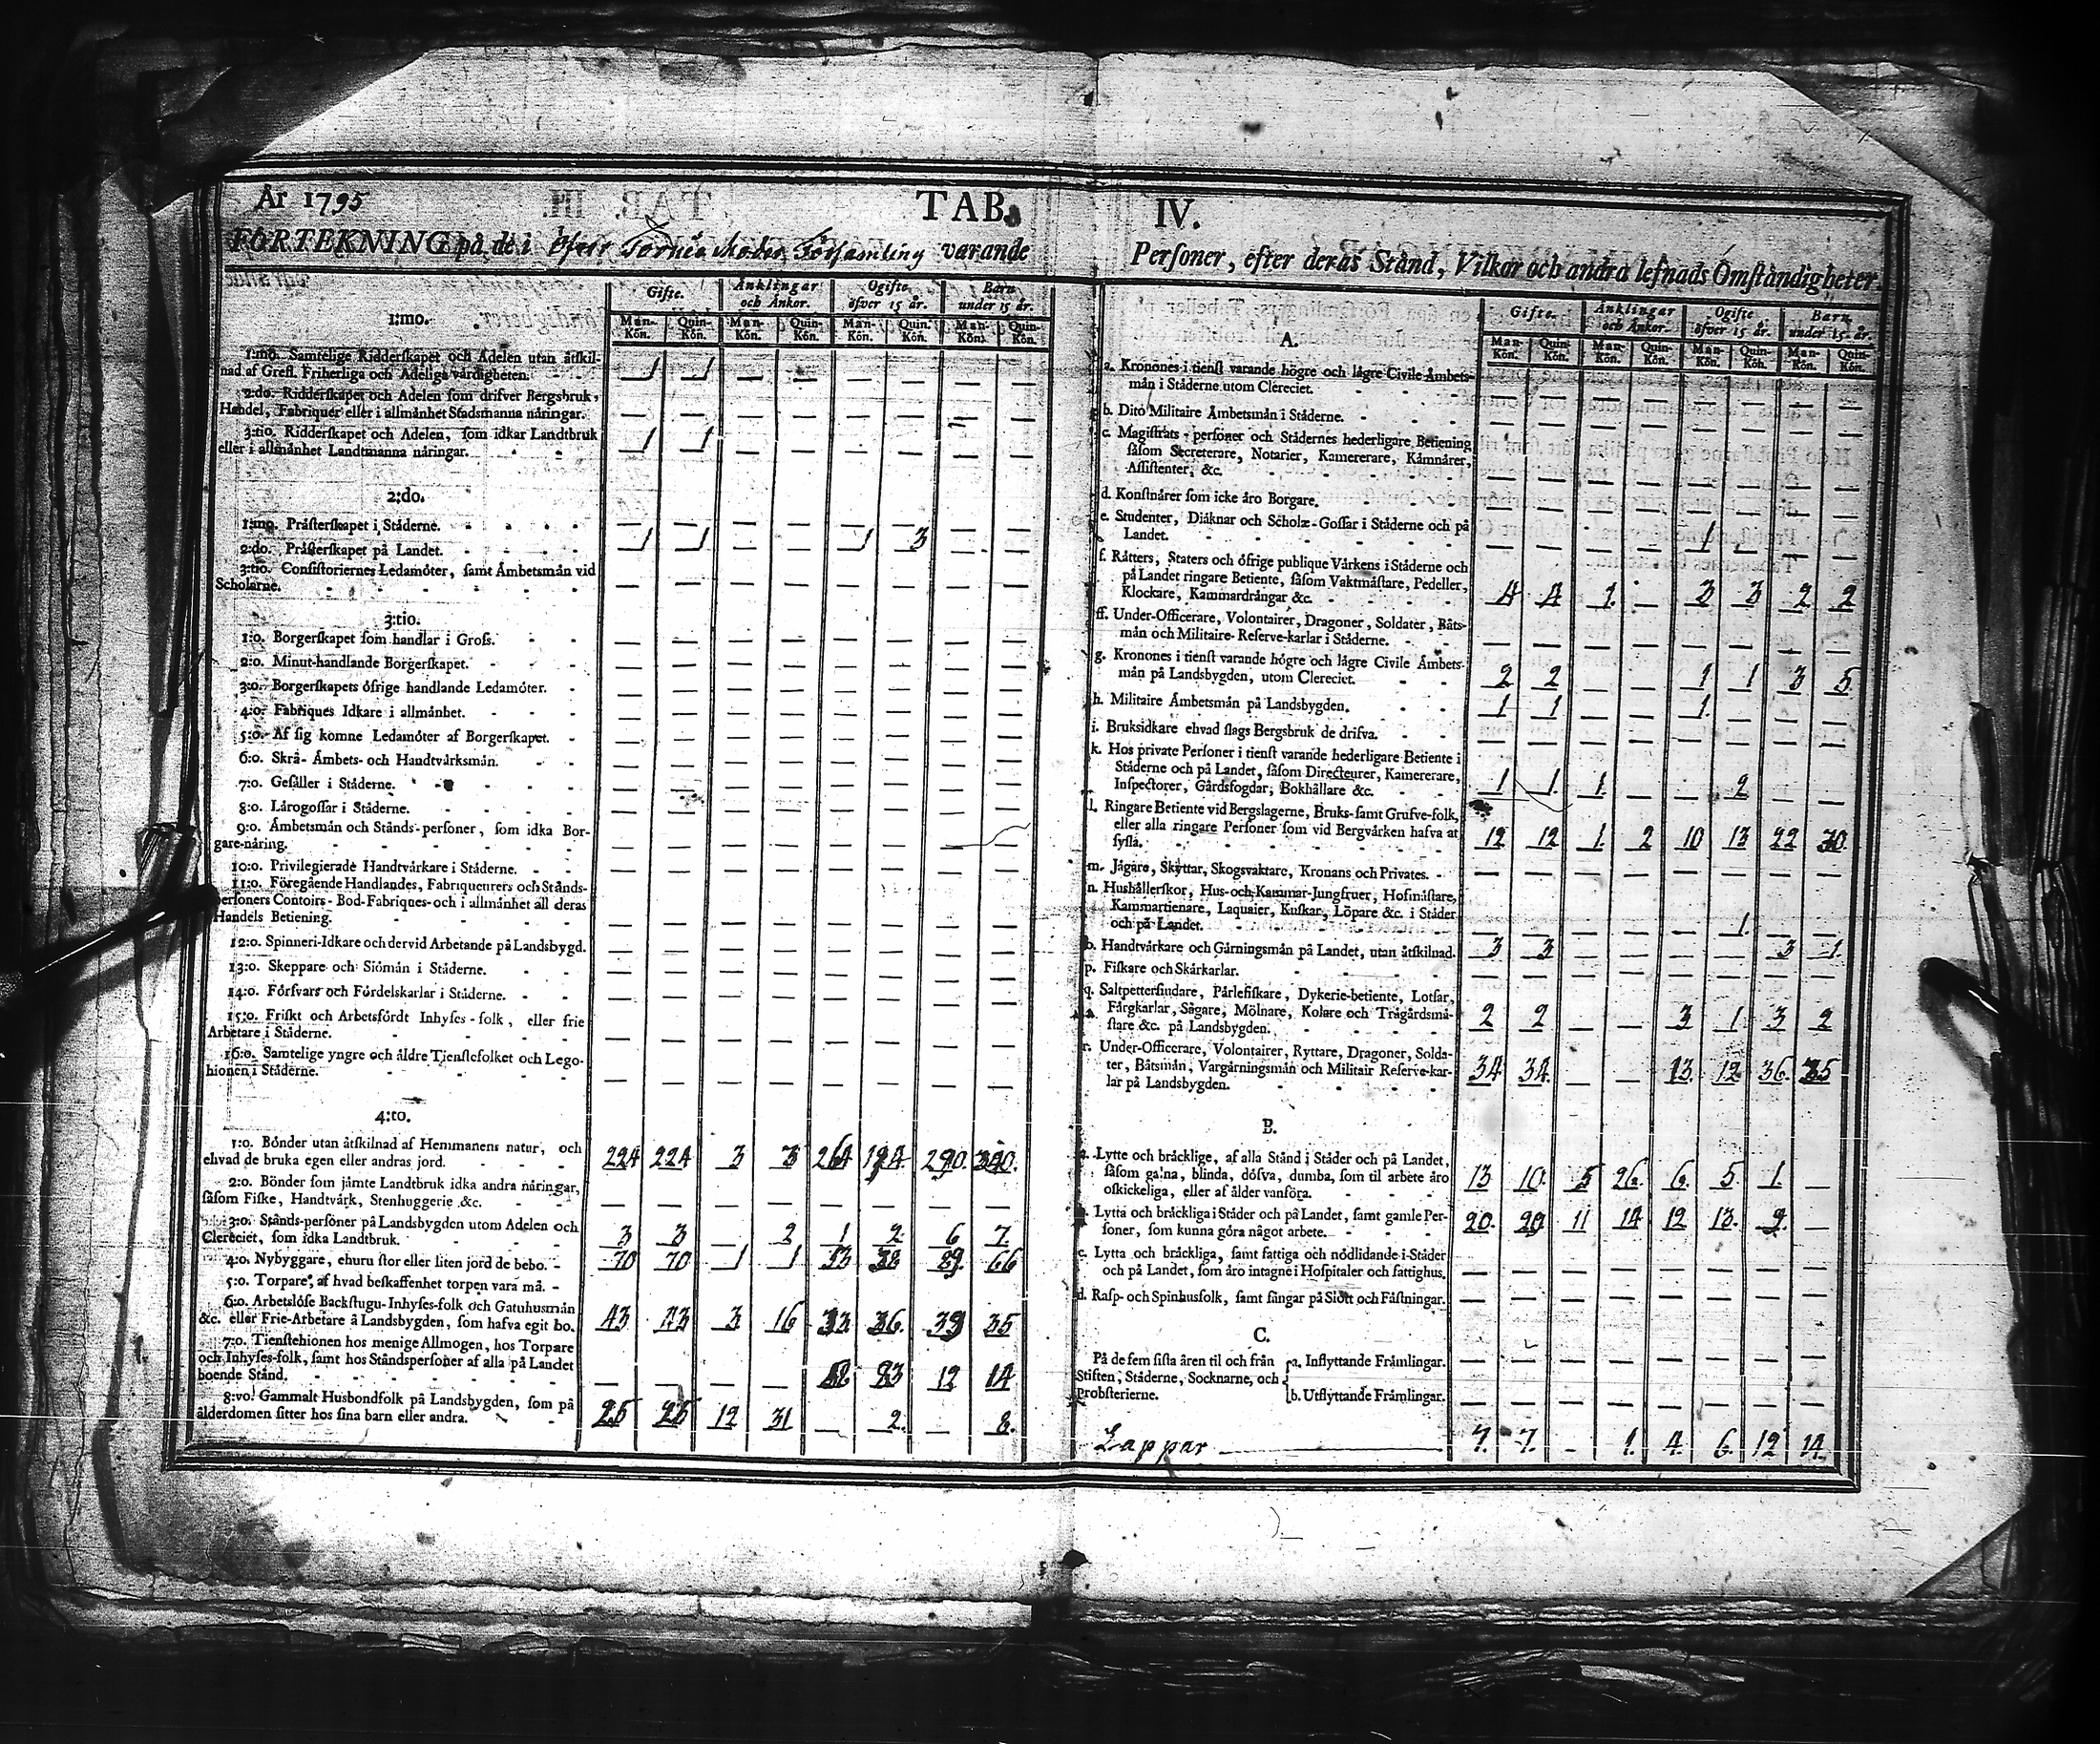 År 1795
TAB.
FÖRTEKNING på de i Öfver Torneå Moder Församling varande
Gifte. Änklingar och Änkor. Ogifte öfver 15 år. Barn under 15 år.
Man-Kön. Quin-Kön. Man-Kön. Quin-Kön. Man-Kön. Quin-Kön. Man-Kön. Quin-Kön.
1:mo.
1:mo. Samtelige Ridderskapet och Adelen utan åtskil-
nad af Grefl. Friherliga och Adeliga vårdigheten. 1 1 — — — — — —
2:do. Ridderskapet och Adelen som drifver Bergsbruk,
Handel, Fabriquer eller i allmånhet Stadsmanna nåringar. — — — — — — — —
3:tio. Ridderskapet och Adelen, som idkar Landtbruk
eller i allmånhet Landtmanna nåringar. 1 1 — — — — — —
2:do.
1:mo. Pråsterskapet i Ståderne. — — — — — — — —
2:do. Pråsterskapet på Landet. 1 1 — — 1 3 — —
3:tio. Consistoriernes Ledamöter, samt Åmbetsmån vid
Scholarne. — — — — — — — —
3:tio.
1:o. Borgerskapet som handlar i Gross. — — — — — — — —
2:o. Minut-handlande Borgerskapet. — — — — — — — —
3:o. Borgerskapets öfrige handlande Ledamöter. — — — — — — — —
4:o. Fabriques Idkare i allmånhet. — — — — — — — —
5:o. Af sig komne Ledamöter af Borgerskapet. — — — — — — — —
6:o. Skrå- Åmbets- och Handtvårksmån. — — — — — — — —
7:o. Gesåller i Ståderne. — — — — — — — —
8:o. Lårogossar i Ståderne. — — — — — — — —
9:o. Åmbetsmån och Stånds-personer, som idka Bor-
gare-nåring. — — — — — — — —
10:o. Privilegierade Handtvårkare i Ståderne. — — — — — — — —
11:o. Föregående Handlandes, Fabriqueurers och Stånds-
personers Contoirs-Bod-Fabriques- och i allmånhet all deras
Handels Betiening. — — — — — — — —
12:o. Spinneri-Idkare och dervid Arbetande på Landsbygd. — — — — — — — —
13:o. Skeppare och Siömån i Ståderne. — — — — — — — —
14:o. Försvars och Fördelskarlar i Ståderne. — — — — — — — —
15:o. Friskt och Arbetsfördt Inhyses-folk, eller frie
Arbetare i Ståderne. — — — — — — — —
16:o. Samtelige yngre och åldre Tienstefolket och Lego-
hionen i Ståderne. — — — — — — — —
4:to.
1:o. Bönder utan åtskilnad af Hemmanens natur, och
ehvad de bruka egen eller andras jord. 224 224 3 3 264 194 290.
2:o. Bönder som jämte Landtbruk idka andra nåringar,
såsom Fiske, Handtvårk, Stenhuggerie &c. — — — — — — — —
3:o. Stånds-personer på Landsbygden utom Adelen och
Clereciet, som idka Landtbruk. 3 3 — 2 1 2. 6 7.
4:o. Nybyggare, ehuru stor eller liten jord de bebo. 70 70 1 1 66
5:o. Torpare, af hvad beskaffenhet torpen vara må.
6:o. Arbetslöse Backstugu-Inhyses-folk och Gatuhusmån
&c. eller Frie-Arbetare å Landsbygden, som hafva egit bo. 43 43 3 16 36. 39 35
7:o. Tienstehionen hos menige Allmogen, hos Torpare
och Inhyses-folk, samt hos Ståndspersoner af alla på Landet
boende Stånd. — — — — 12 14
8:vo. Gammalt Husbondfolk på Landsbygden, som på
ålderdomen sitter hos sina barn eller andra. 25 25 12 31 — 2. — 8.
IV.
Personer, efter deras Stånd, Vilkor och andra lefnads Omståndigheter.
Gifte. Änklingar och Änkor. Ogifte öfver 15 år. Barn under 15. år.
Man-Kön. Quin-Kön. Man-Kön. Quin-Kön. Man-Kön. Quin-Kön. Man-Kön. Quin-Kön.
A.
a. Kronones i tienst varande högre och lågre Civile Åmbets-
mån i Ståderne utom Clereciet. — — — — — — — —
b. Dito Militaire Åmbetsmån i Ståderne. — — — — — — — —
c. Magistrats-personer och Stådernes hederligare Betiening
såsom Secreterare, Notarier, Kamererare, Kåmnårer,
Assistenter, &c. — — — — — — — —
d. Konstnårer som icke åro Borgare. — — — — — — — —
e. Studenter, Diåknar och Scholæ-Gossar i Ståderne och på
Landet. — — — — 1 — — —
f. Råtters, Staters och öfrige publique Vårkens i Ståderne och
på Landet ringare Betiente, såsom Vaktmåstare, Pedeller,
Klockare, Kammardrångar &c. 4 4 1. — 3 3 2 2
ff. Under-Officerare, Volontairer, Dragoner, Soldater, Båts-
mån och Militaire-Reserve-karlar i Ståderne. — — — — — — — —
g. Kronones i tienst varande högre och lågre Civile Åmbets-
mån på Landsbygden, utom Clereciet. 2 2 — — 1 1 3 5
h. Militaire Åmbetsmån på Landsbygden. 1 1 — — 1. — — —
i. Bruksidkare ehvad slags Bergsbruk de drifva. — — — — — — — —
k. Hos private Personer i tienst varande hederligare Betiente i
Ståderne och på Landet, såsom Directeurer, Kamererare,
Inspectorer, Gårdsfogdar, Bokhållare &c. 1 1. 1. — — 2 — —
l. Ringare Betiente vid Bergslagerne, Bruks- samt Grufve-folk,
eller alla ringare Personer som vid Bergvårken hafva at
syssla. 12 12 1. 2 10 13 22 30.
m. Jågare, Skyttar, Skogsvaktare, Kronans och Privates. — — — — — — — —
n. Hushållerskor, Hus- och Kammar-Jungfruer, Hofmåstare,
Kammartienare, Laquaier, Kuskar, Löpare &c. i Ståder
och på Landet. — — — — — 1. — —
o. Handtvårkare och Gårningsmån på Landet, utan åtskilnad. 3 3 — — — — 3 1.
p. Fiskare och Skårkarlar. — — — — — — — —
q. Saltpettersiudare, Pårlefiskare, Dykerie-betiente, Lotsar,
Fårgkarlar, Sågare, Mölnare, Kolare och Trågårdsmå-
stare &c. på Landsbygden. 2 2 — — 3 1 3 2
r. Under-Officerare, Volontairer, Ryttare, Dragoner, Solda-
ter, Båtsmån, Vargårningsmån och Militair Reserve-kar-
lar på Landsbygden. 34 34. — — 13. 12 36.
B.
a. Lytte och bråcklige, af alla Stånd i Ståder och på Landet,
såsom galna, blinda, döfva, dumba, som til arbete åro
oskickeliga, eller af ålder vanföra. 13 10. 5 26. 6. 5. 1. —
b. Lytta och bråckliga i Ståder och på Landet, samt gamle Per-
soner, som kunna göra något arbete. 20. 29 11 14 12 13. 2. —
c. Lytta och bråckliga, samt fattiga och nödlidande i Ståder
och på Landet, som åro intagne i Hospitaler och fattighus. — — — — — — — —
d. Rasp- och Spinhusfolk, samt fångar på Slott och Fåstningar. — — — — — — — —
C.
På de fem sista åren til och från
Stiften, Ståderne, Socknarne, och
Probsterierne.
a. Inflyttande Fråmlingar. — — — — — — — —
b. Utflyttande Fråmlingar. — — — — — — — —
Lappar — 7. 7. — 1. 4. 6. 12 14.